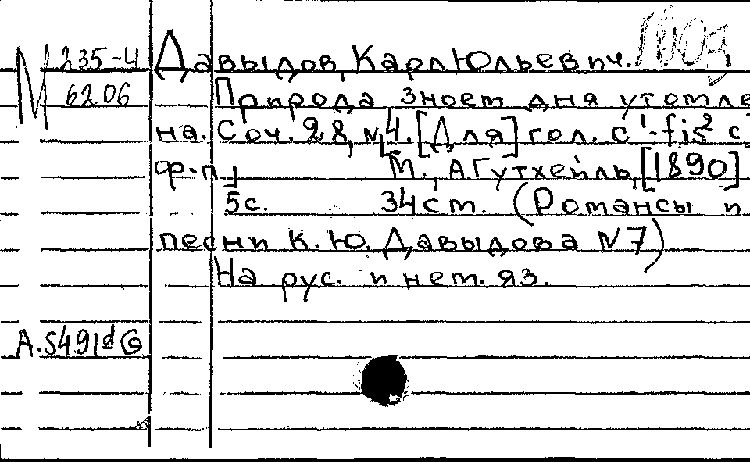 М 235-4 Давыдов, Карл Юльевич.
6206 Природа зноем дня утомле
на. Соч. 28, №4. [Для] гол. с¹-fis² с
ф-п.] М., А Гутхейль, [1890]
5с. 34см. (Романсы и
песни К. Ю. Давыдова №7)
На рус. и нем. яз.
А.5491д